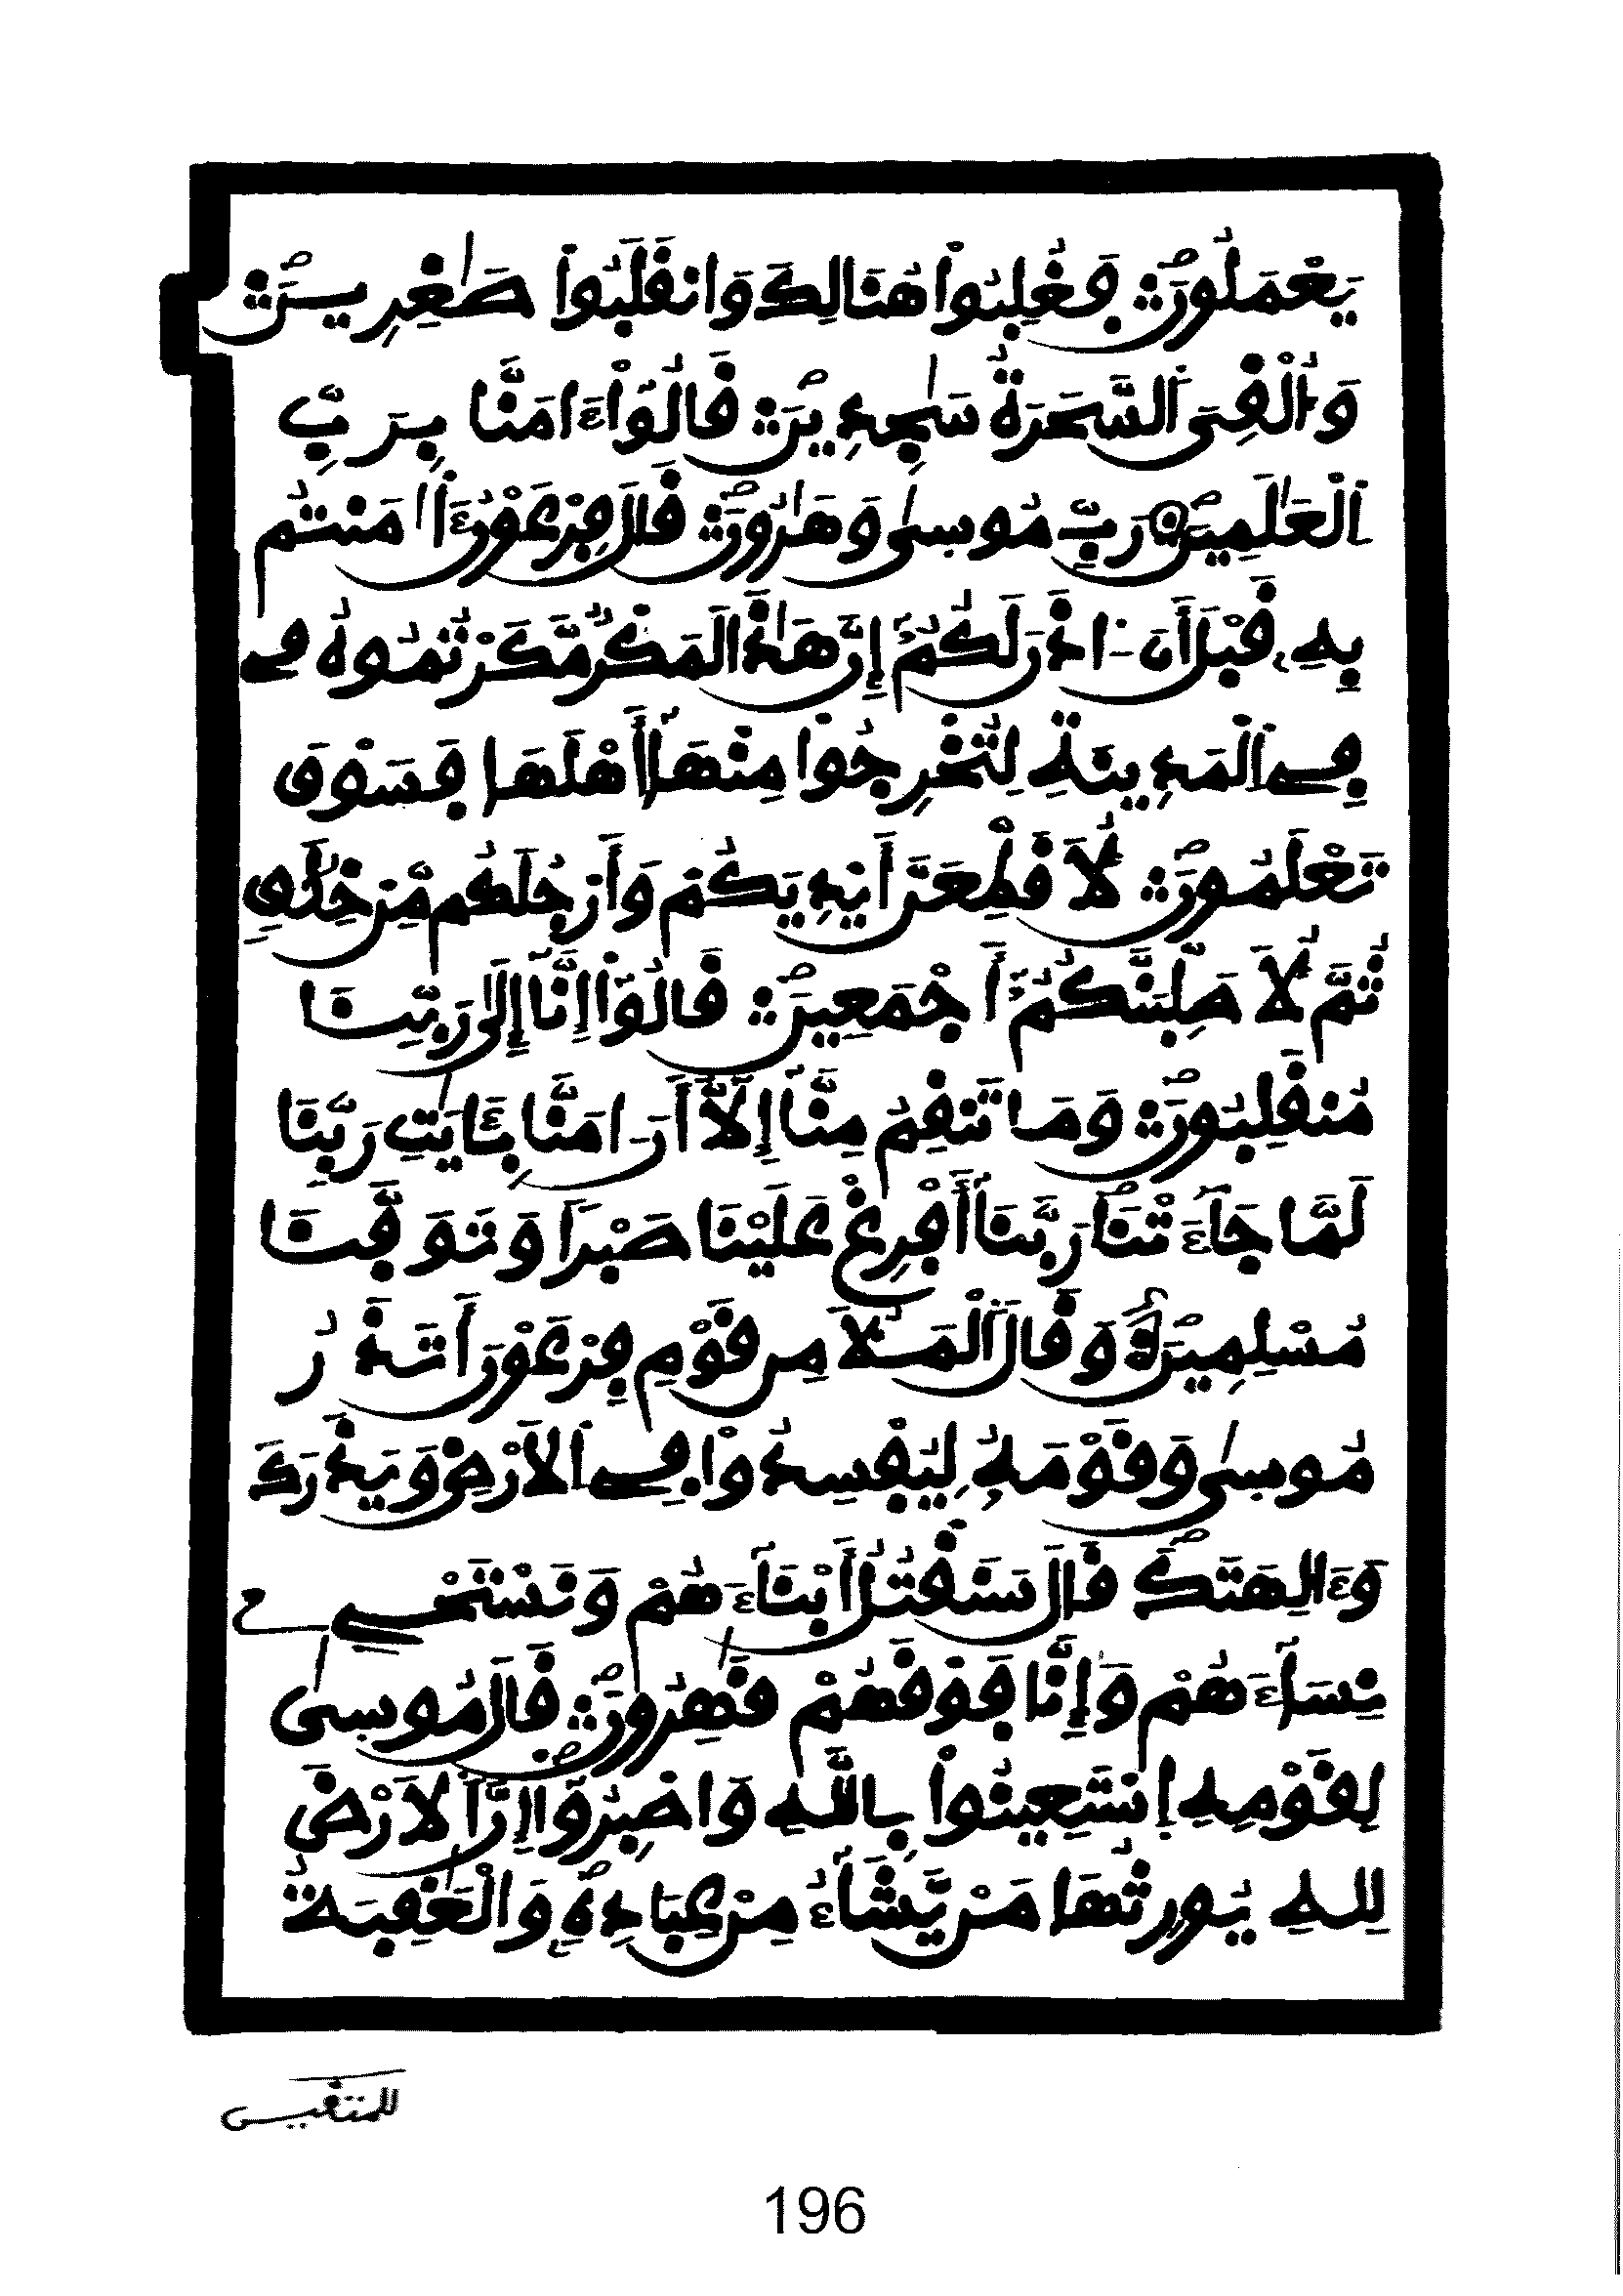 يَعْمَلُونَ فَغُلِبُوا۟ هُنَالِكَ وَانقَلَبُوا۟ صَٰغِرِينَ
وَأُلْقِىَ اَ۬لسَّحَرَةُ سَٰجِدِينَ قَالُوٓا۟ ءَامَنَّا بِرَبِّ
اِ۬لْعَٰلَمِينَ رَبِّ مُوسىٰ وَهَٰرُونَ قَالَ فِرْعَوْنُ ءَا۬مَنتُم
بِهِۦ قَبْلَ أَنَ اٰذَنَ لَكُمُۥٓ إِنَّ هَٰذَا لَمَكْرٌ مَّكَرْتُمُوهُ فِے
فِے اِ۬لْمَدِينَةِ لِتُخْرِجُوا۟ مِنْهَآ أَهْلَهَا فَسَوْفَ
تَعْلَمُونَ لَأُقَطِّعَنَّ أَيْدِيَكُمْ وَأَرْجُلَكُم مِّنْ خِلَٰفٖ
ثُمَّ لَأُصَلِّبَنَّكُمُۥٓ أَجْمَعِينَ قَالُوٓا۟ إِنَّآ إِلَىٰ رَبِّنَا
مُنقَلِبُونَ وَمَا تَنقِمُ مِنَّآ إِلَّآ أَنَ اٰمَنَّا بِـَٔايَٰتِ رَبِّنَا
لَمَّا جَآءَتْنَا رَبَّنَآ أَفْرِغْ عَلَيْنَا صَبْرًا وَتَوَفَّنَا
مُسْلِمِينَ وَقَالَ اَ۬لْمَلَأُ مِن قَوْمِ فِرْعَوْنَ أَتَذَرُ
مُوسىٰ وَقَوْمَهُۥ لِيُفْسِدُوا۟ فِے اِ۬لْأَرْضِ وَيَذَرَكَ
وَءَالِهَتَكَ قَالَ سَنَقْتُلُ أَبْنَآءَهُمْ وَنَسْتَحْيِۦ
نِسَآءَهُمْ وَإِنَّا فَوْقَهُمْ قَٰهِرُونَ قَالَ مُوسىٰ
لِقَوْمِهِ اِ۪سْتَعِينُوا۟ بِاللَّهِ وَاصْبِرُوٓا۟ إِنَّ اَ۬لْأَرْضَ
لِلهِ يُورِثُهَا مَنْ يَّشَآءُ مِنْ عِبَادِهِۦ وَالْعَٰقِبَةُ
للمتقيں
196